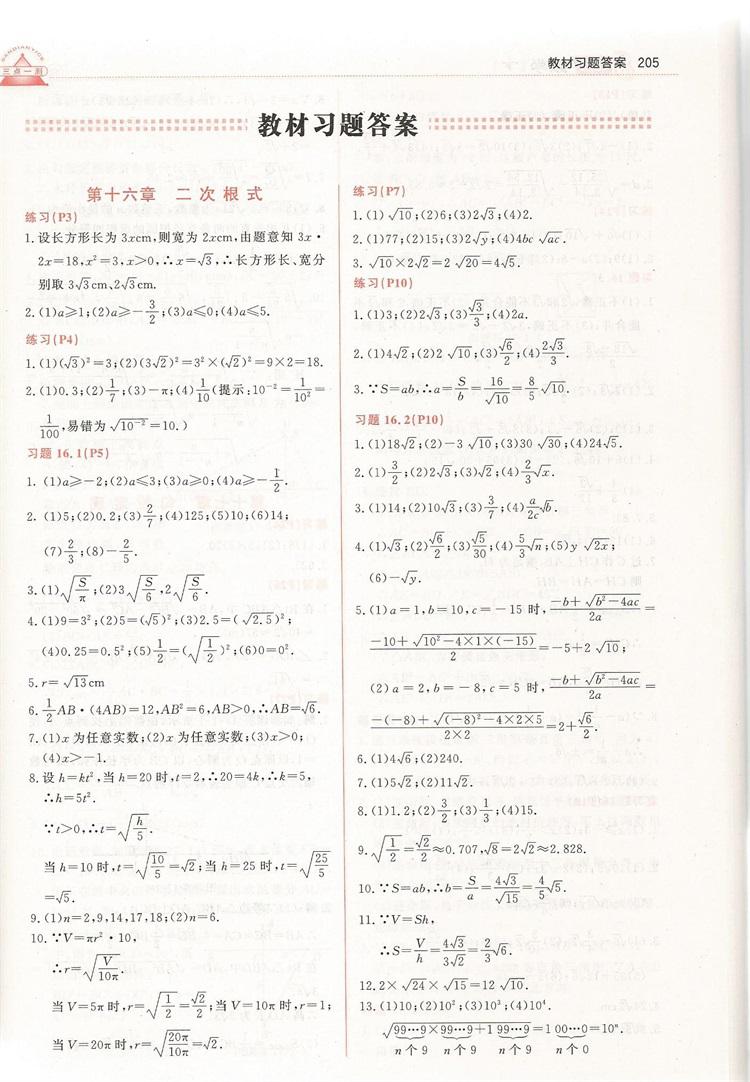 SANDIANYICE
三点一测
教材习题答案 205
教材习题答案
第十六章 二次根式
练习(P3)
1.设长方形长为3xcm,则宽为2xcm,由题意知3x·
2x=18,x²=3,x>0,∴x=√3,∴长方形长、宽分
别取3√3cm,2√3cm.
2.(1)a≥1;(2)a≥-3/2;(3)a≤0;(4)a≤5.
练习(P4)
1.(1)(√3)²=3;(2)(3√2)²=3²×(√2)²=9×2=18.
2.(1)0.3;(2)1/7;(3)-π;(4)1/10(提示:10⁻²=1/10²=
1/100,易错为√(10⁻²)=10.)
习题16.1(P5)
1.(1)a≥-2;(2)a≤3;(3)a≥0;(4)a≥-1/2.
2.(1)5;(2)0.2;(3)2/7;(4)125;(5)10;(6)14;
(7)2/3;(8)-2/5.
3.(1)√(S/π);(2)3√(S/6),2√(S/6).
4.(1)9=3²;(2)5=(√5)²;(3)2.5=(√2.5)²;
(4)0.25=0.5²;(5)1/2=(√(1/2))²;(6)0=0².
5.r=√13cm
6.1/2AB·(4AB)=12,AB²=6,AB>0,∴AB=√6.
7.(1)x为任意实数;(2)x为任意实数;(3)x>0;
(4)x>-1.
8.设h=kt²,当h=20时,t=2,∴20=4k,∴k=5,
∴h=5t².
∵t>0,∴t=√(h/5).
当h=10时,t=√(10/5)=√2;当h=25时,t=√(25/5)
=√5.
9.(1)n=2,9,14,17,18;(2)n=6.
10.∵V=πr²·10,
∴r=√(V/10π).
当V=5π时,r=√(1/2)=√2/2;当V=10π时,r=1;
当V=20π时,r=√(20π/10π)=√2.
练习(P7)
1.(1)√10;(2)6;(3)2√3;(4)2.
2.(1)77;(2)15;(3)2√y;(4)4bc√ac.
3.√10×2√2=2√20=4√5.
练习(P10)
1.(1)3;(2)2√3;(3)√3/3;(4)2a.
2.(1)4√2;(2)2√10;(3)√6/2;(4)2√3/3.
3.∵S=ab,∴a=S/b=16/√10=8/5√10.
习题16.2(P10)
1.(1)18√2;(2)-3√10;(3)30√30;(4)24√5.
2.(1)3/2;(2)2√3;(3)√2/2;(4)2/3√x.
3.(1)14;(2)10√3;(3)3/7;(4)a/2c√b.
4.(1)√3;(2)√6/2;(3)√5/30;(4)5/3√n;(5)y√2x;
(6)-√y.
5.(1)a=1,b=10,c=-15时,(-b+√(b²-4ac))/2a=
(-10+√(10²-4×1×(-15)))/2=-5+2√10;
(2)a=2,b=-8,c=5时,(-b+√(b²-4ac))/2a=
(-(-8)+√((-8)²-4×2×5))/(2×2)=2+√6/2.
6.(1)4√6;(2)240.
7.(1)5√2;(2)11√2.
8.(1)1.2;(2)3/2;(3)1/3;(4)15.
9.√(1/2)=√2/2≈0.707,√8=2√2≈2.828.
10.∵S=ab,∴b=S/a=4√3/√15=4/5√5.
11.∵V=Sh,
∴S=V/h=4√3/3√2=2/3√6.
12.2×√24×√15=12√10.
13.(1)10;(2)10²;(3)10³;(4)10⁴.
√(99…9×99…9+1 99…9)=1 00…0=10ⁿ.
n个9 n个9 n个9 n个0